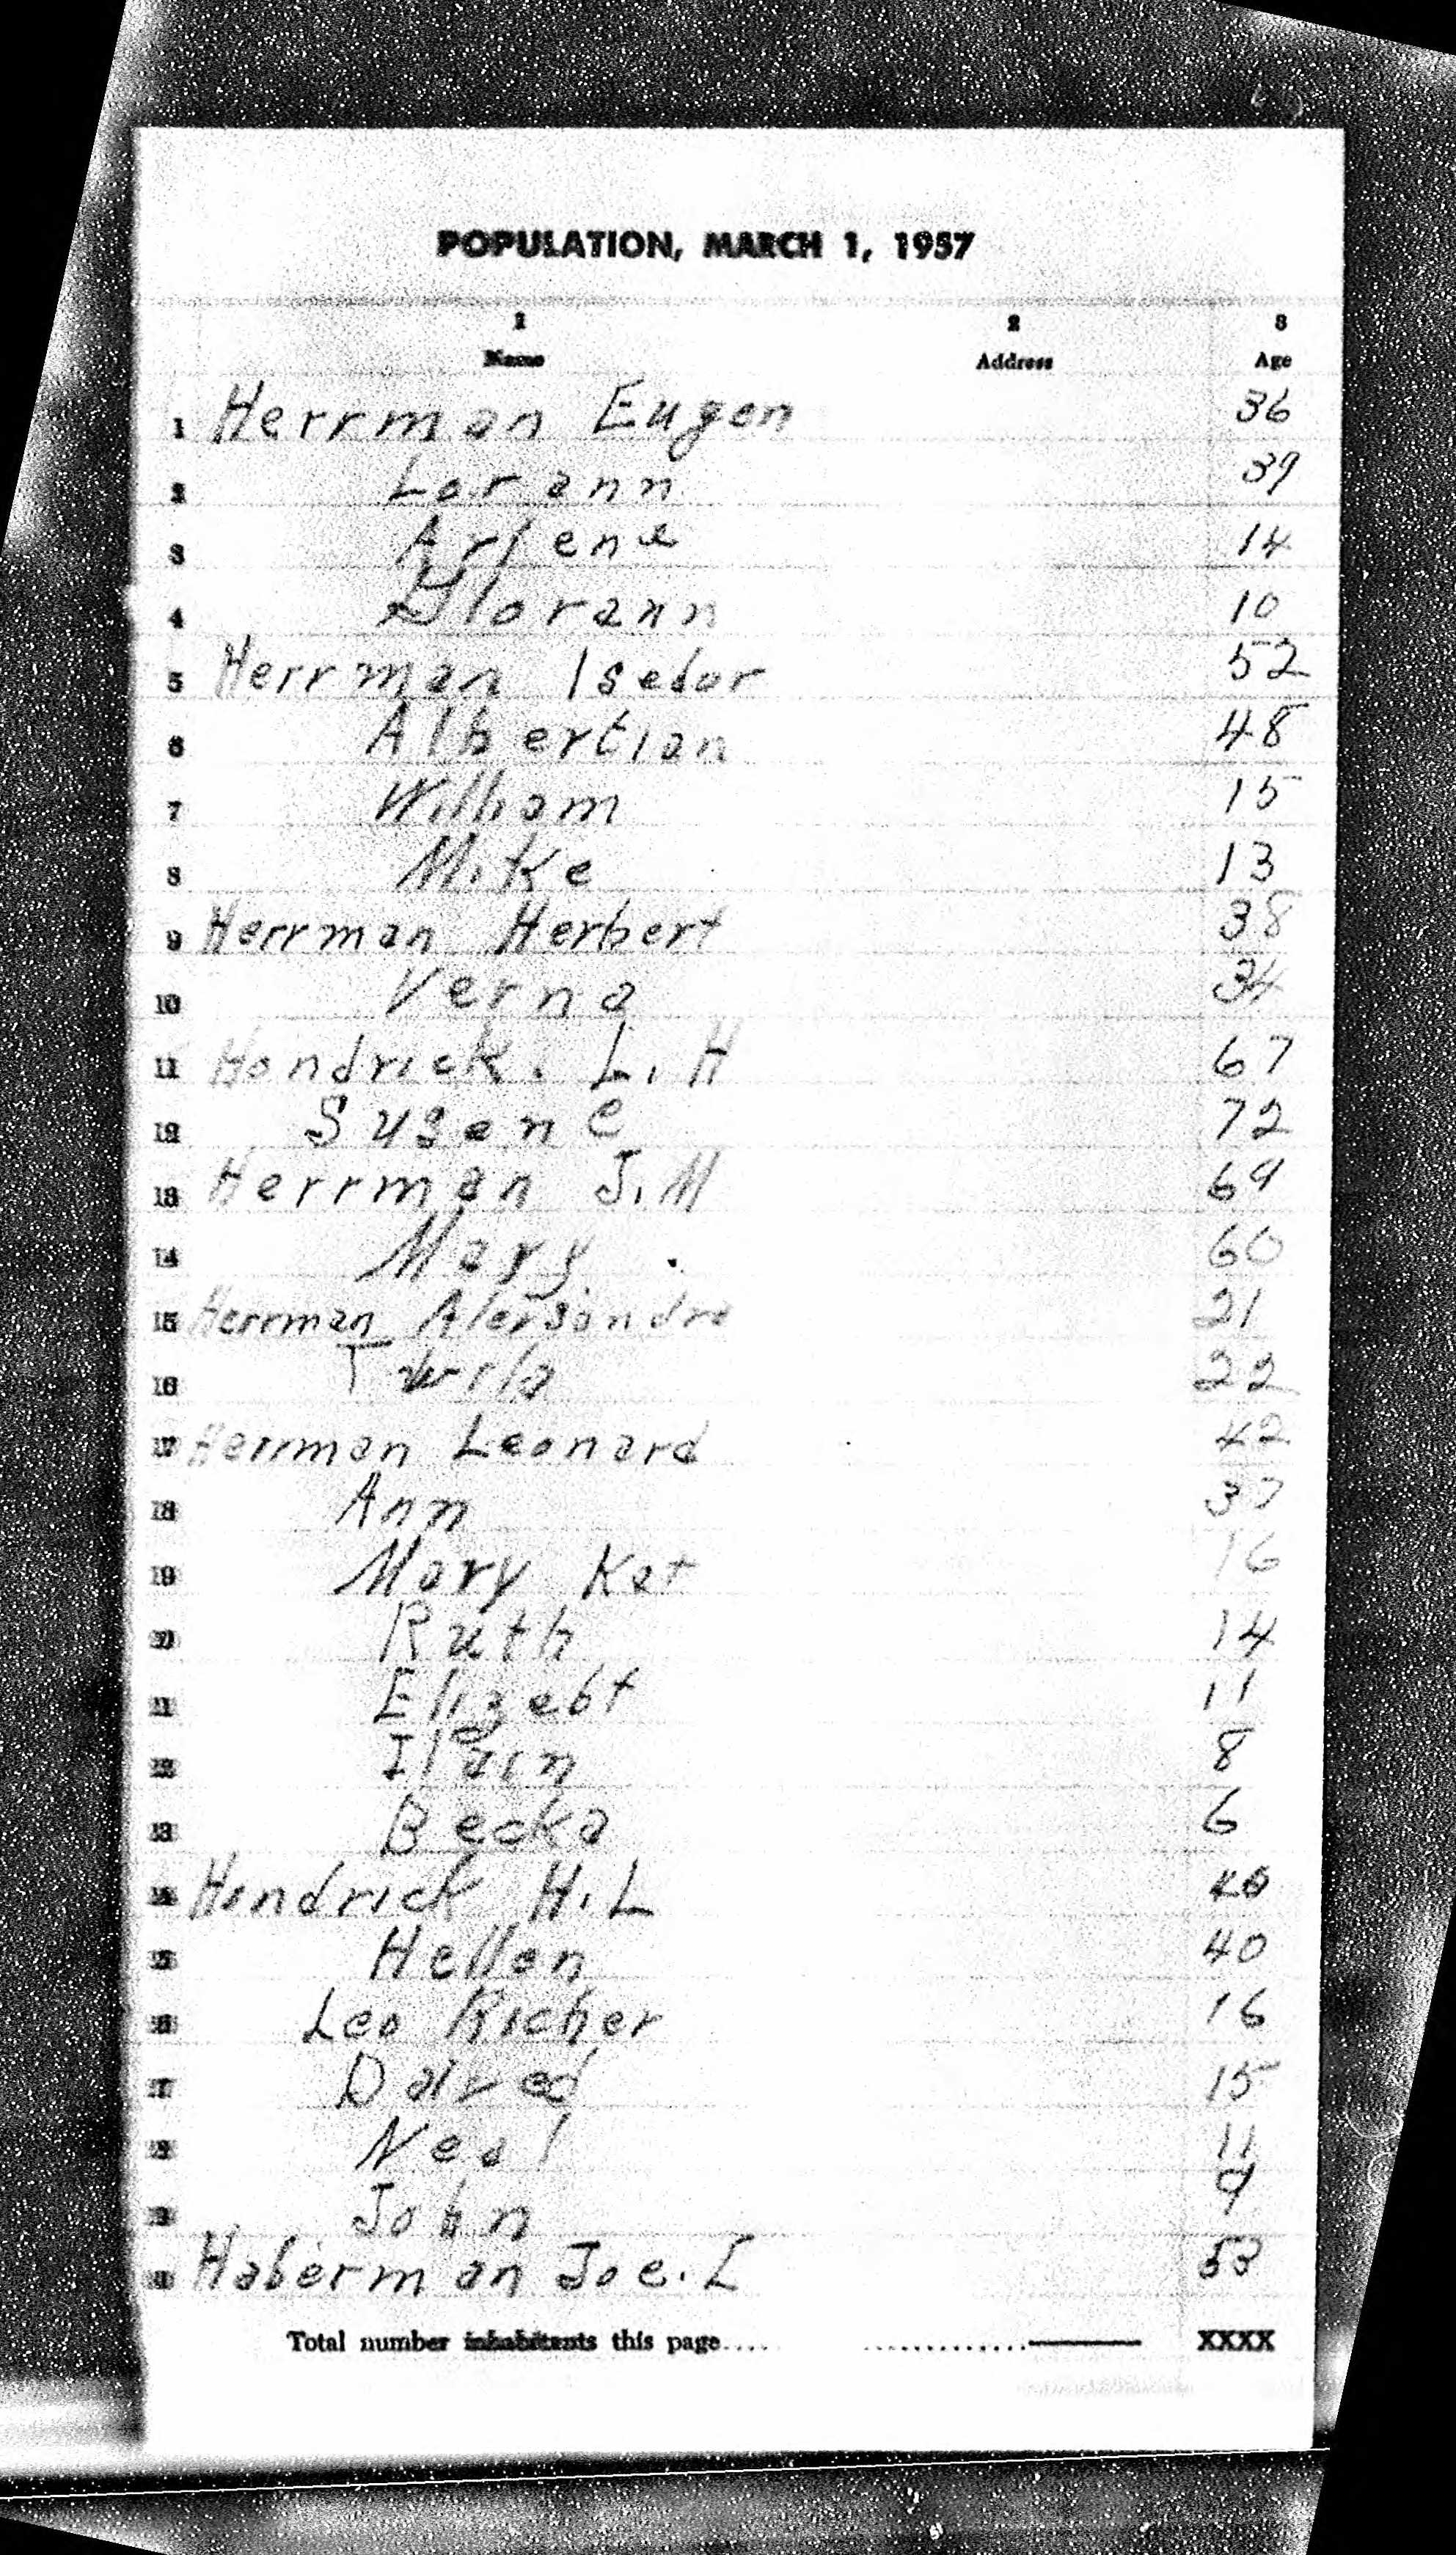 POPULATION, MARCH 1, 1957
1 2 3
Name Address Age
1 Herrman Eugen 36
2 Lorann 39
3 Arlene 14
4 Glorann 10
5 Herrman Isedor 52
6 Albertian 48
7 William 15
8 Mike 13
9 Herrman Herbert 38
10 Verna 34
11 Hondrick. L. H 67
12 Susene 72
13 Herrman J. M 69
14 Mary 60
15 Herrman 21
16 Twila 22
17 Herrman Leonard 42
18 Ann 37
19 Mary Kat 16
20 Ruth 14
21 Elizebt 11
22 Ilain 8
23 Becka 6
24 Hondrick H. L
25 Hellen 40
26 Leo Richer 16
27 15
28 Neal 11
29 John 9
30 Haberman Joe. L 53
Total number inhabitants this page.... ............. XXXX